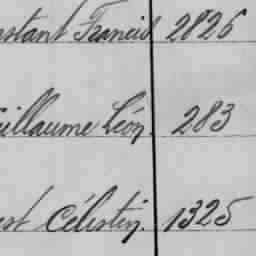 nstant Francis 2826
uillaume Léon. 283
est Célestin. 1325